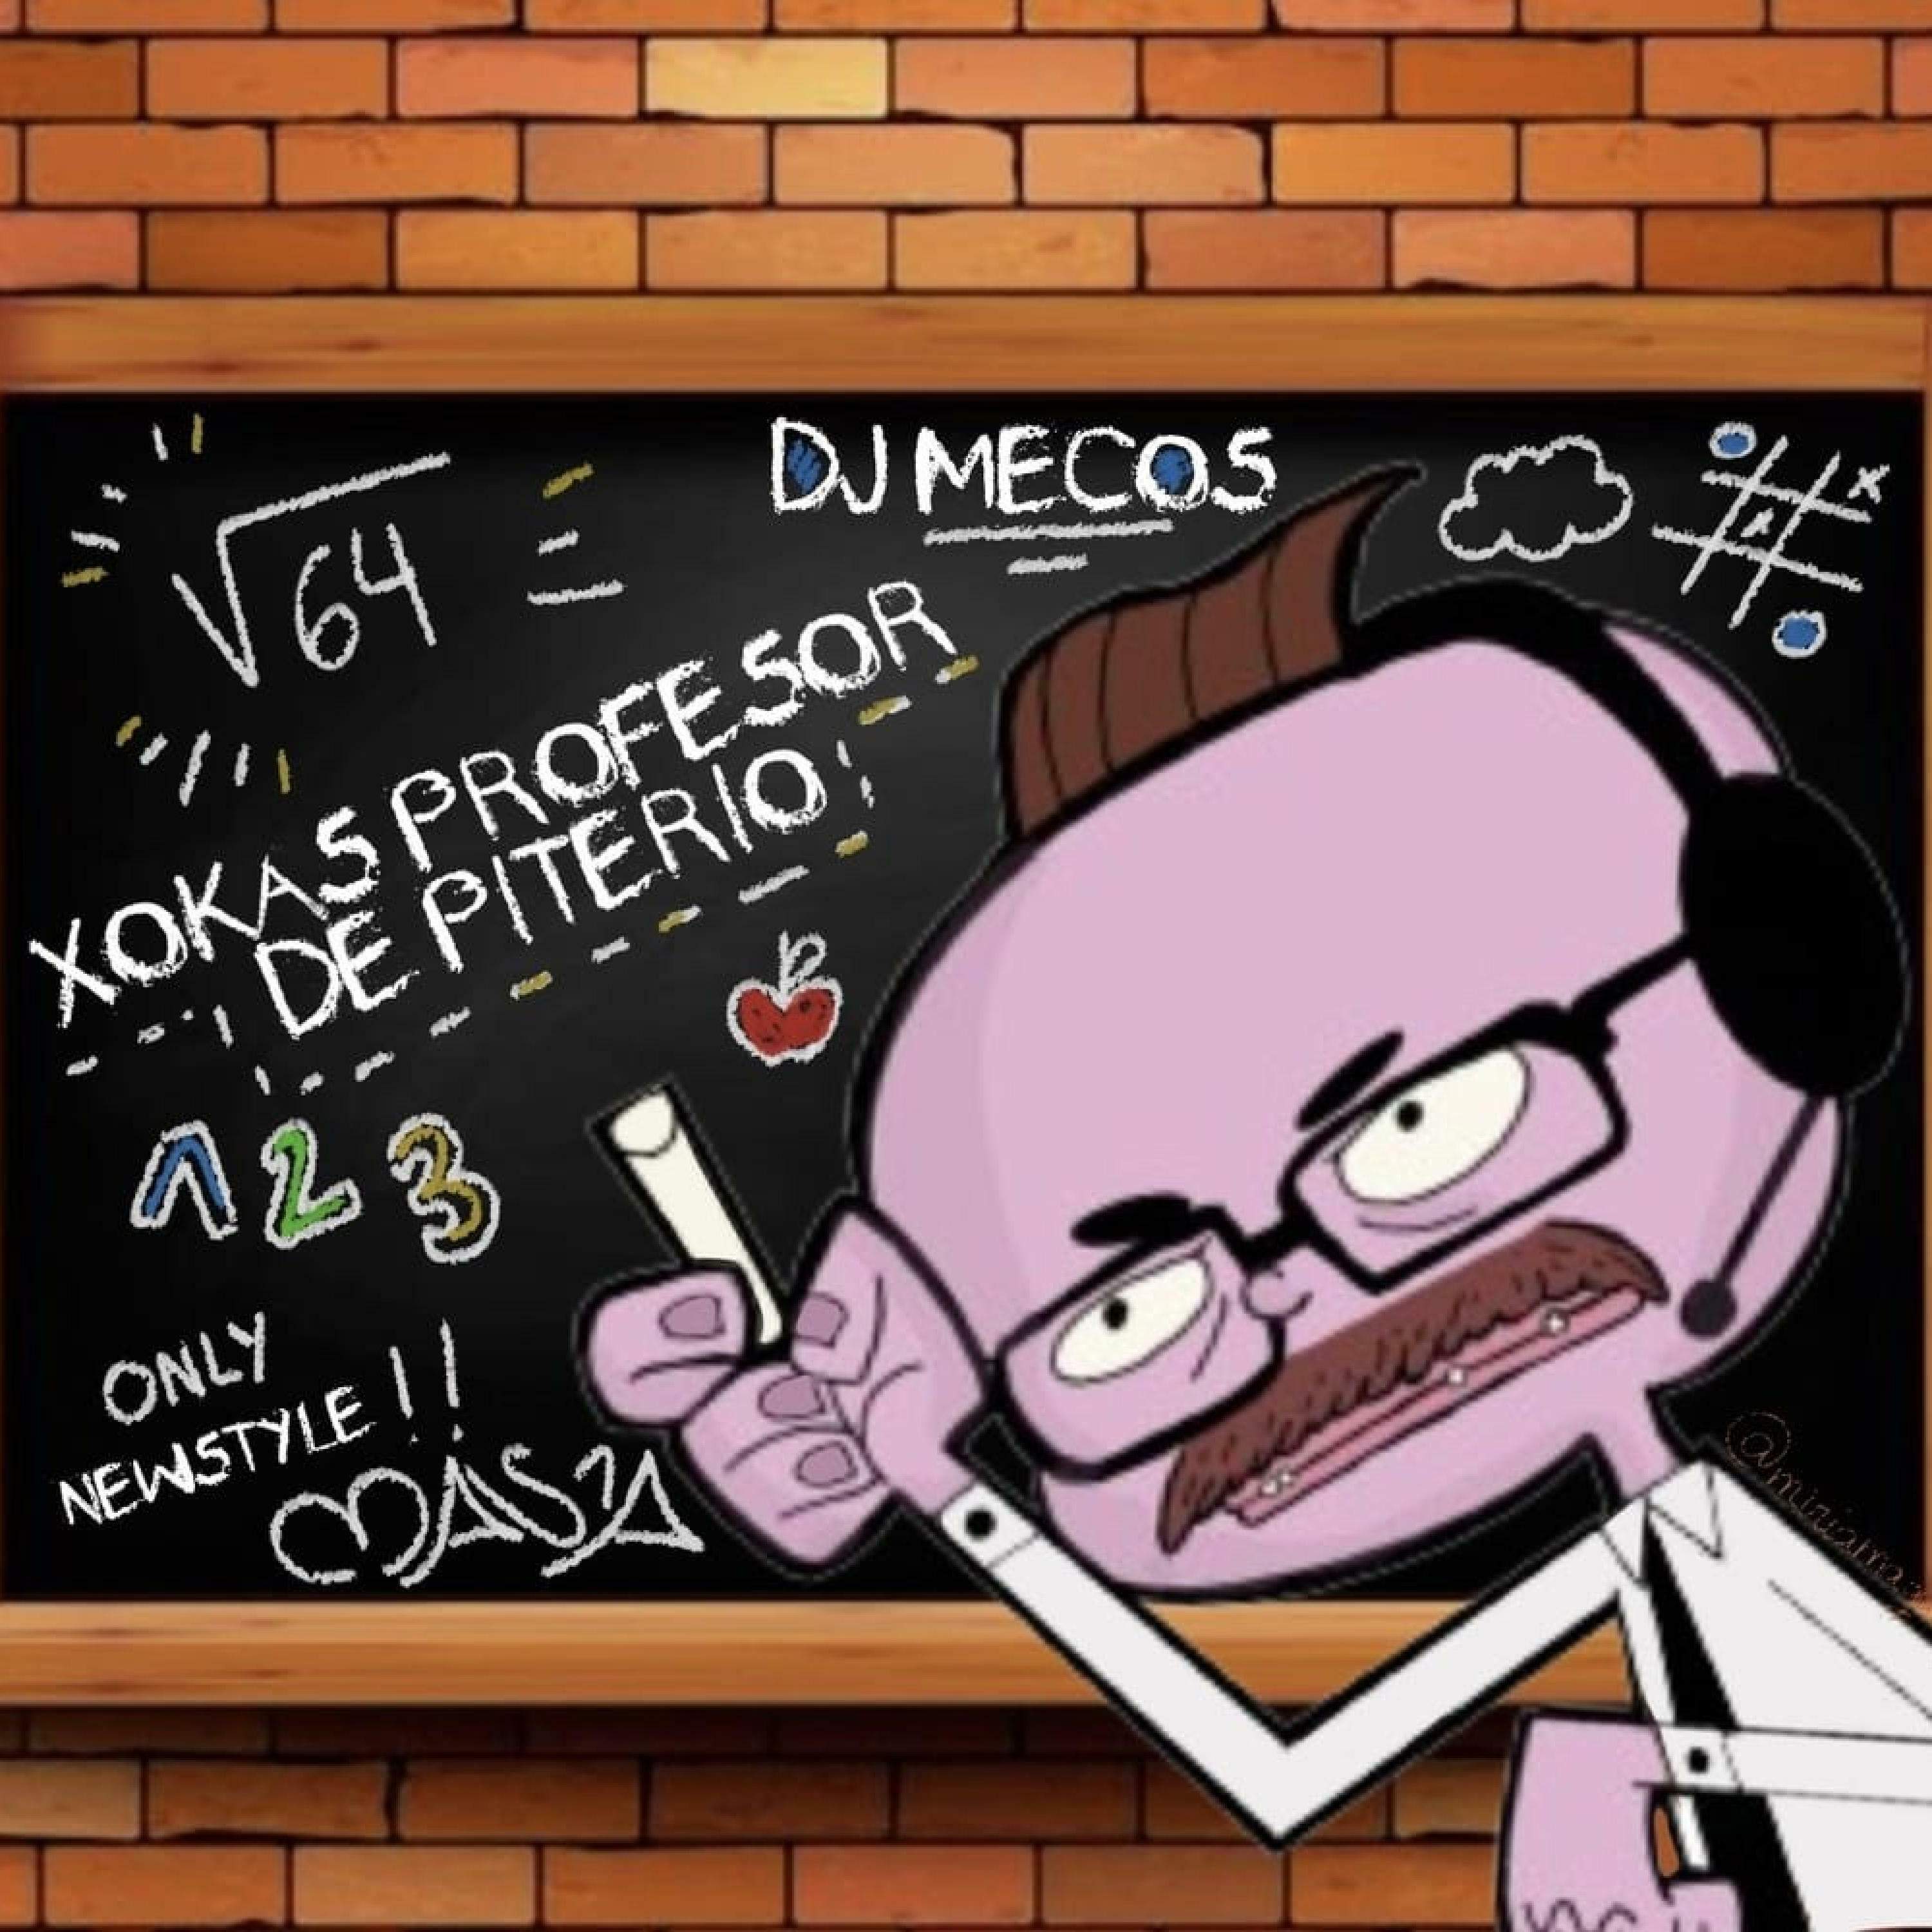 DJ MECOS
√64 =
XOKAS PROFESOR
DE PITERIO
1 2 3
ONLY
NEWSTYLE!!
MASIA